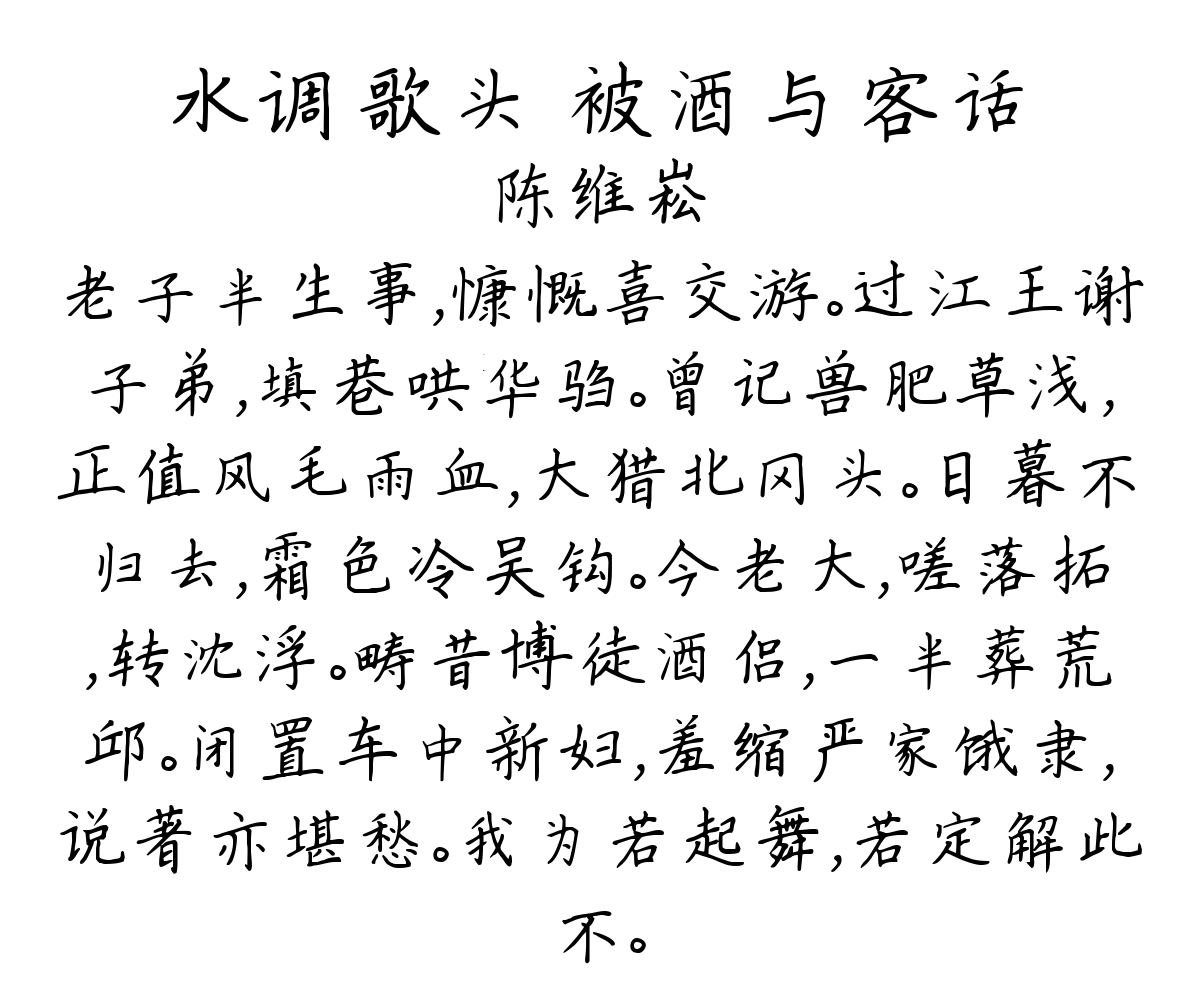 水调歌头 被酒与客话
陈维崧
老子半生事,慷慨喜交游。过江王谢
子弟,填巷哄华驺。曾记兽肥草浅,
正值风毛雨血,大猎北冈头。日暮不
归去,霜色冷吴钩。今老大,嗟落拓
,转沈浮。畴昔博徒酒侣,一半葬荒
邱。闭置车中新妇,羞缩严家饿隶,
说著亦堪愁。我为若起舞,若定解此
不。